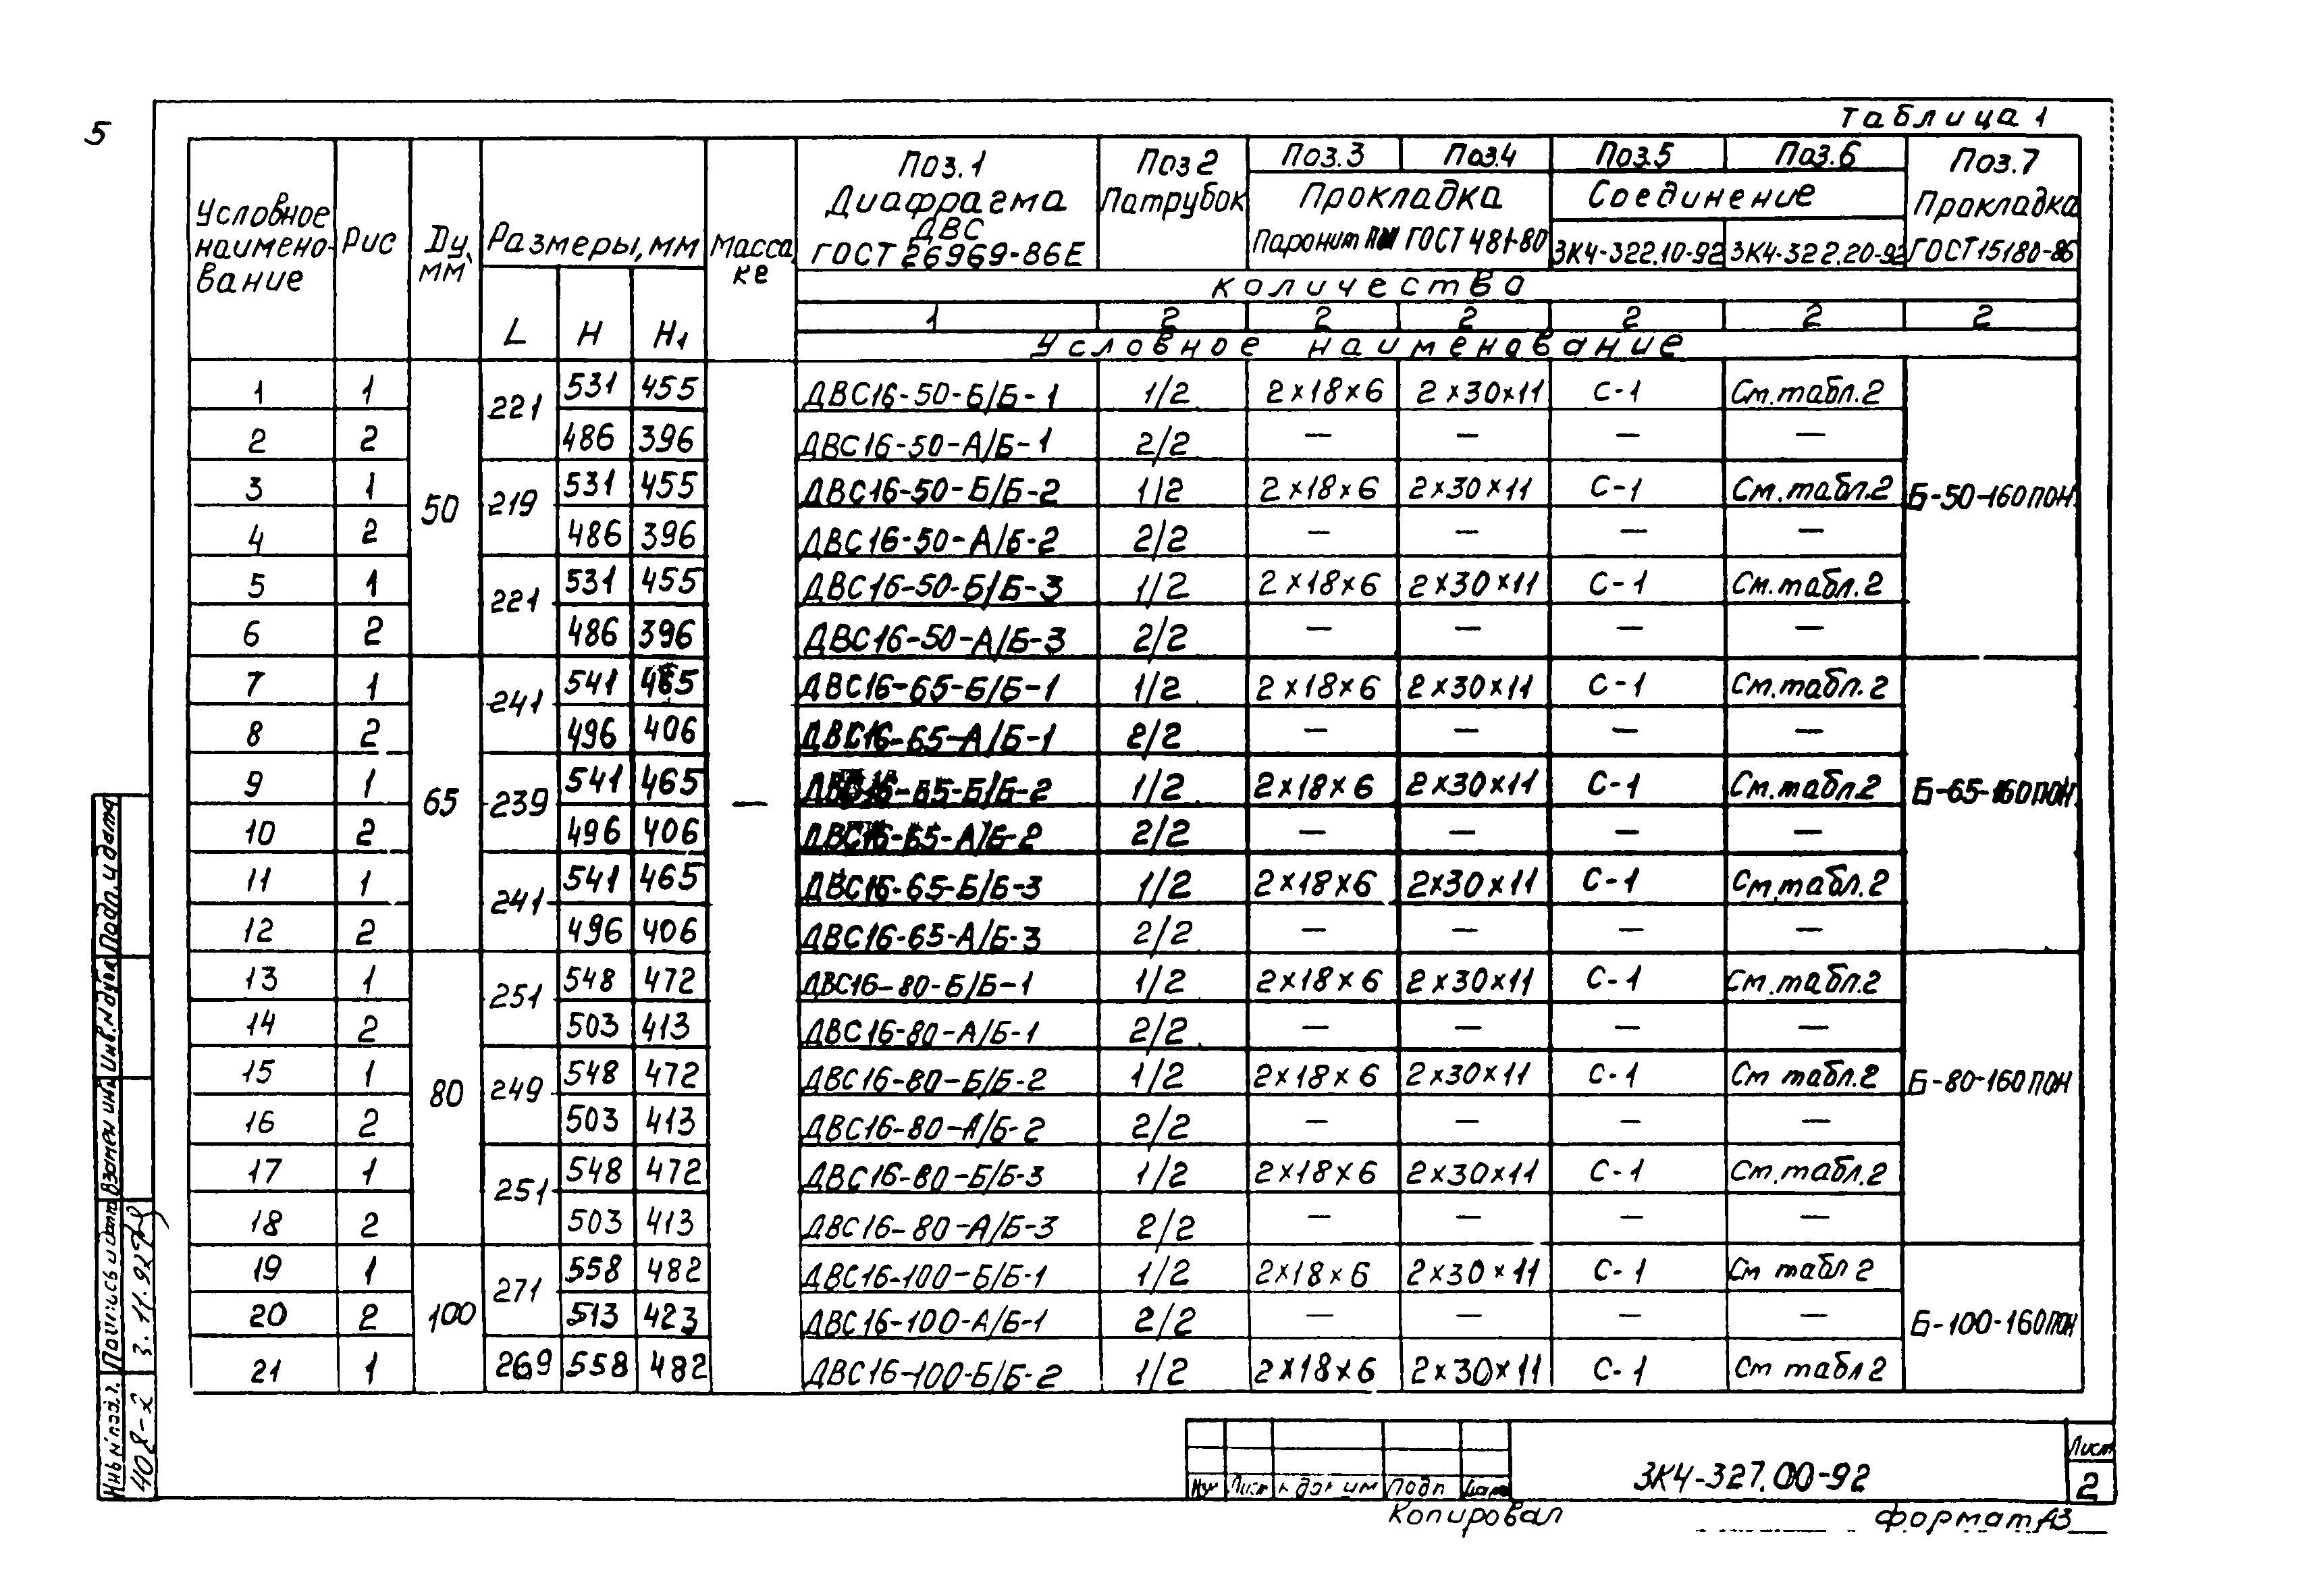 5
Таблица 1
Условное наимено- вание | Рис | Dу, мм | Размеры, мм | Масса, кг | Поз.1 Диафрагма ДВС ГОСТ 26969-86Е | Поз 2 Патрубок | Поз.3 | Поз.4 | Поз.5 | Поз.6 | Поз.7 Прокладка ГОСТ 15180-86
Прокладка Паронит ГОСТ 481-80 | Соединение
ЗК4-322.10-92 | ЗК4-322.20-92
количество
L | H | H1 | 1 | 2 | 2 | 2 | 2 | 2 | 2
Условное наименование
1 | 1 | 50 | 221 | 531 | 455 | — | ДВС16-50-Б/Б-1 | 1/2 | 2×18×6 | 2×30×11 | С-1 | См.табл.2 | Б-50-160 ПОН
2 | 2 | 486 | 396 | ДВС16-50-А/Б-1 | 2/2 | — | — | — | —
3 | 1 | 219 | 531 | 455 | ДВС16-50-Б/Б-2 | 1/2 | 2×18×6 | 2×30×11 | С-1 | См.табл.2
4 | 2 | 486 | 396 | ДВС16-50-А/Б-2 | 2/2 | — | — | — | —
5 | 1 | 221 | 531 | 455 | ДВС16-50-Б/Б-3 | 1/2 | 2×18×6 | 2×30×11 | С-1 | См.табл.2
6 | 2 | 486 | 396 | ДВС16-50-А/Б-3 | 2/2 | — | — | — | —
7 | 1 | 65 | 241 | 541 | 465 | ДВС16-65-Б/Б-1 | 1/2 | 2×18×6 | 2×30×11 | С-1 | См.табл.2 | Б-65-160 ПОН
8 | 2 | 496 | 406 | ДВС16-65-А/Б-1 | 2/2 | — | — | — | —
9 | 1 | 239 | 541 | 465 | ДВС16-65-Б/Б-2 | 1/2 | 2×18×6 | 2×30×11 | С-1 | См.табл.2
10 | 2 | 496 | 406 | ДВС16-65-А/Б-2 | 2/2 | — | — | — | —
11 | 1 | 241 | 541 | 465 | ДВС16-65-Б/Б-3 | 1/2 | 2×18×6 | 2×30×11 | С-1 | См.табл.2
12 | 2 | 496 | 406 | ДВС16-65-А/Б-3 | 2/2 | — | — | — | —
13 | 1 | 80 | 251 | 548 | 472 | ДВС16-80-Б/Б-1 | 1/2 | 2×18×6 | 2×30×11 | С-1 | См.табл.2 | Б-80-160 ПОН
14 | 2 | 503 | 413 | ДВС16-80-А/Б-1 | 2/2 | — | — | — | —
15 | 1 | 249 | 548 | 472 | ДВС16-80-Б/Б-2 | 1/2 | 2×18×6 | 2×30×11 | С-1 | См табл.2
16 | 2 | 503 | 413 | ДВС16-80-А/Б-2 | 2/2 | — | — | — | —
17 | 1 | 251 | 548 | 472 | ДВС16-80-Б/Б-3 | 1/2 | 2×18×6 | 2×30×11 | С-1 | См.табл.2
18 | 2 | 503 | 413 | ДВС16-80-А/Б-3 | 2/2 | — | — | — | —
19 | 1 | 100 | 271 | 558 | 482 | ДВС16-100-Б/Б-1 | 1/2 | 2×18×6 | 2×30×11 | С-1 | См табл 2 | Б-100-160 ПОН
20 | 2 | 513 | 423 | ДВС16-100-А/Б-1 | 2/2 | — | — | — | —
21 | 1 | 269 | 558 | 482 | ДВС16-100-Б/Б-2 | 1/2 | 2×18×6 | 2×30×11 | С-1 | См табл 2
Подп. и дата
Инв.№дубл
Взамен инв
Подпись и дата
3.11.92
Инв № подл.
408-2
Лист
Подп
ЗК4-327.00-92
Лист
2
Копировал
Формат А3